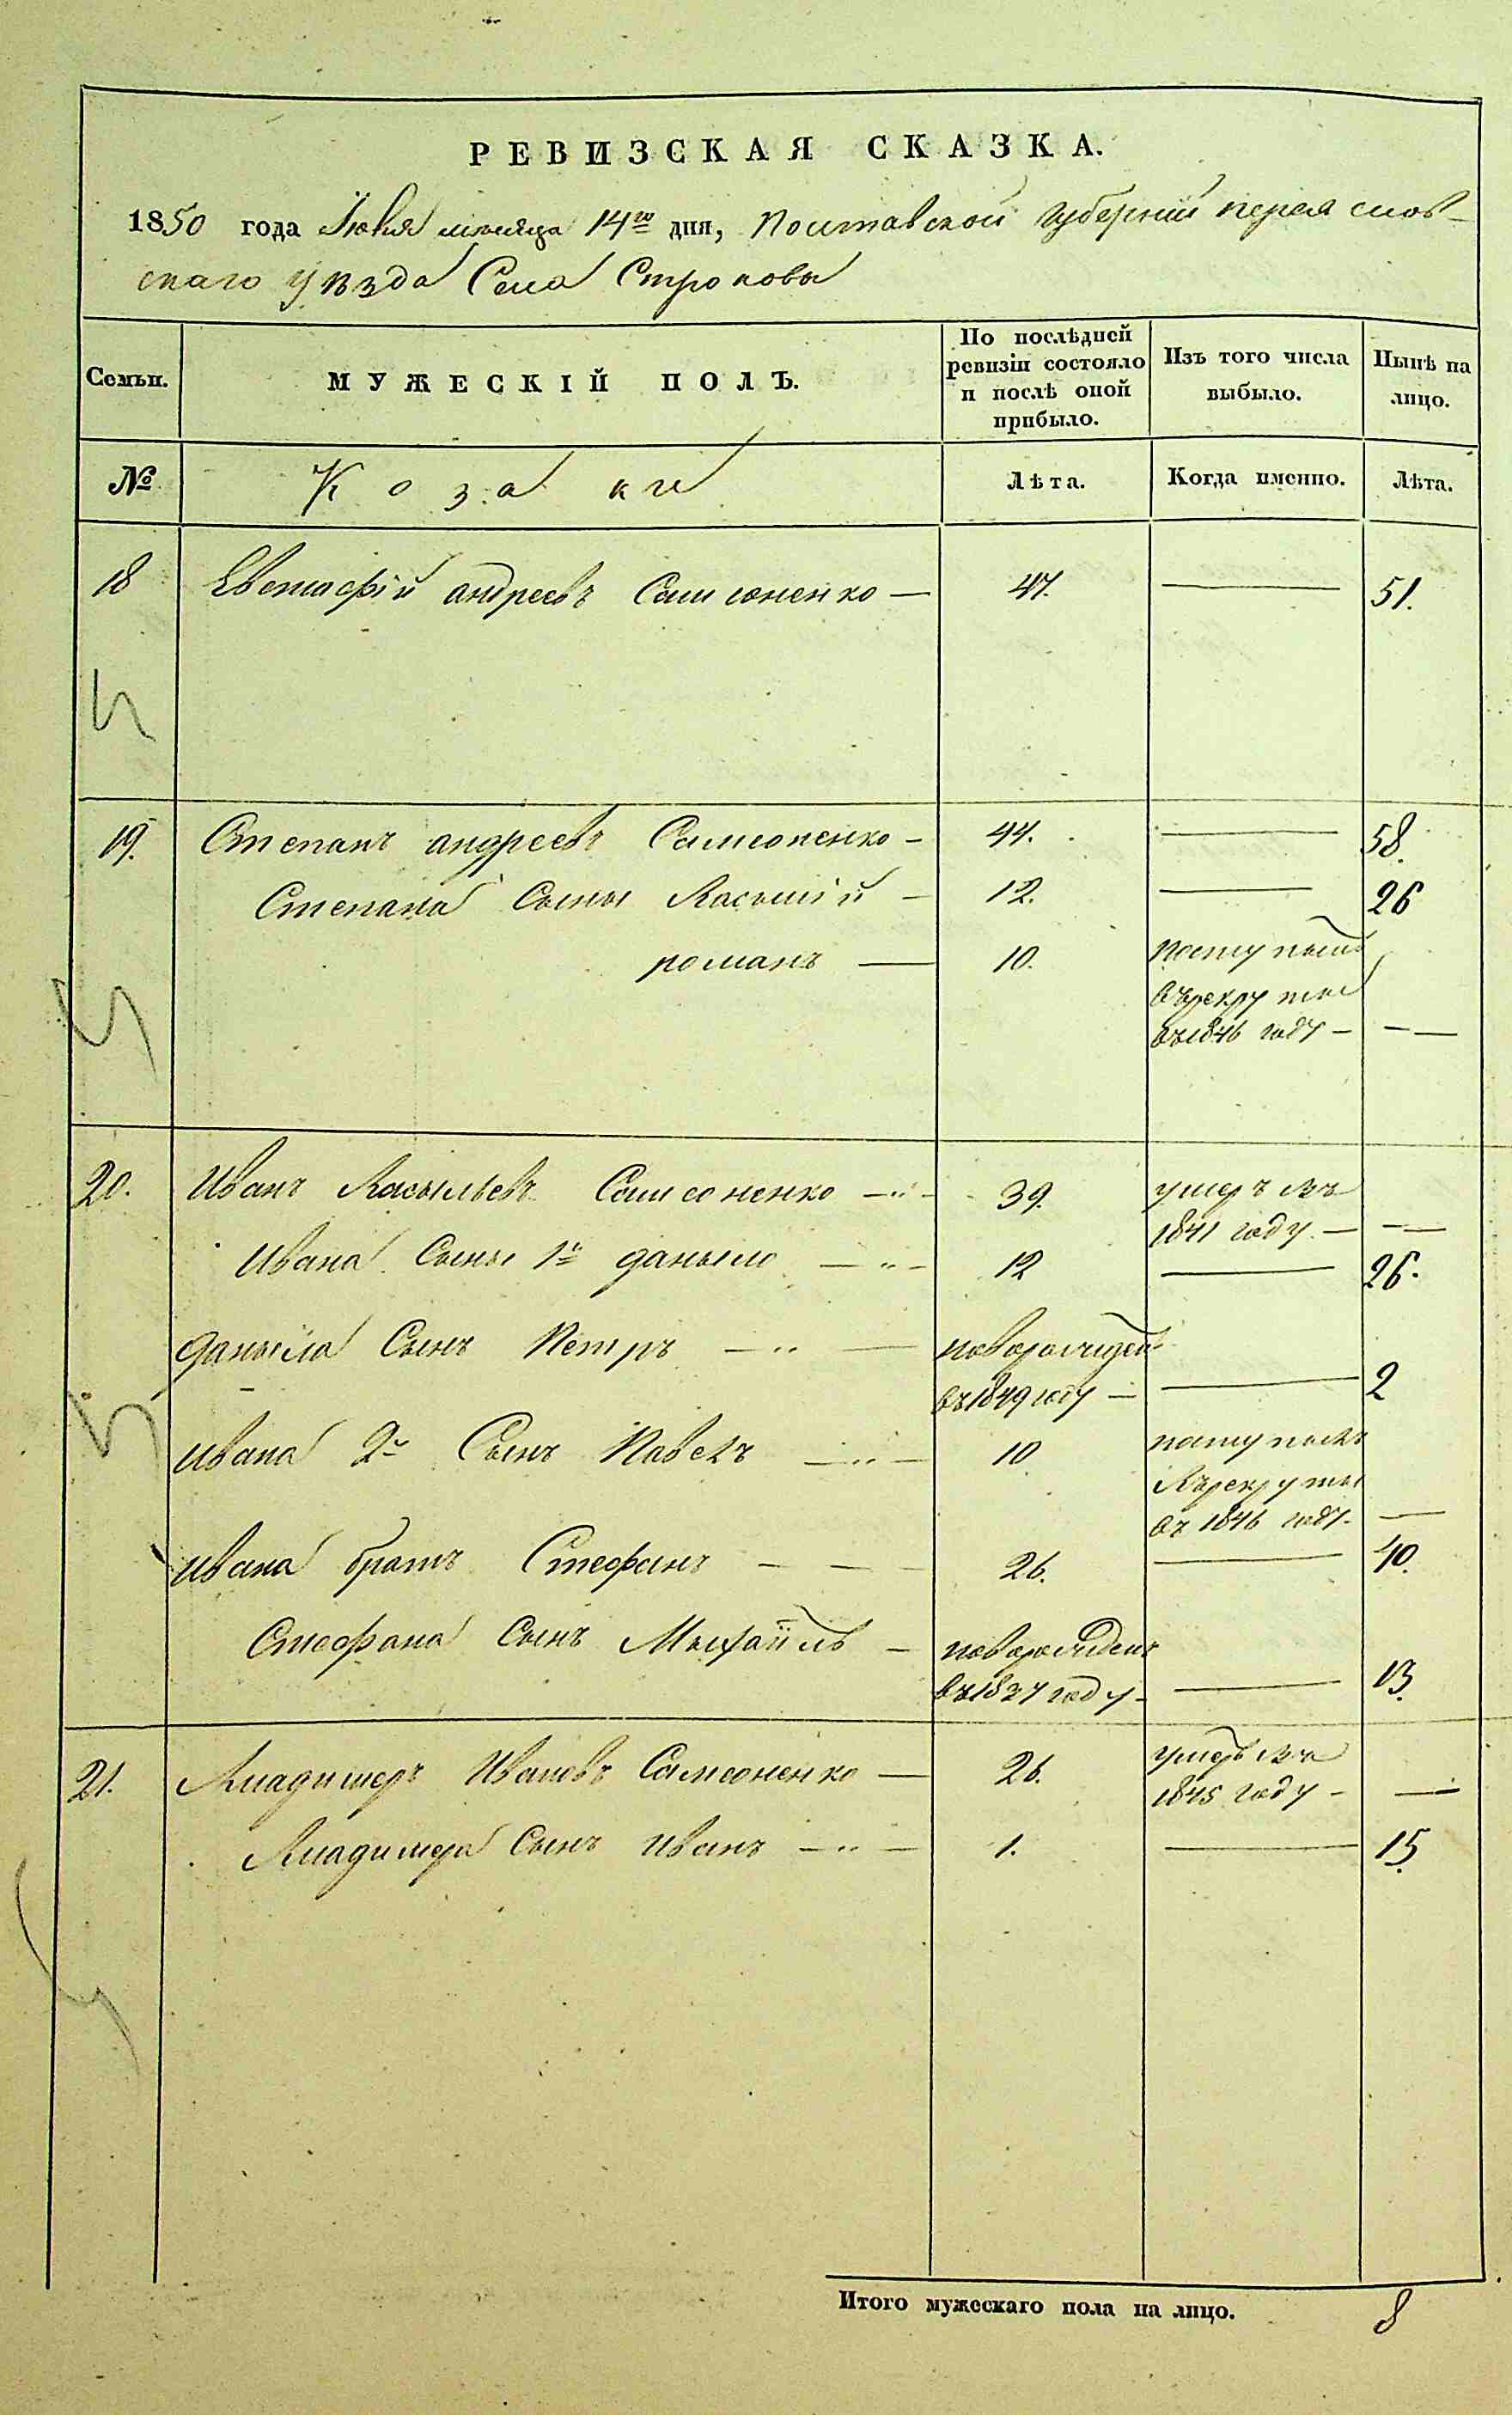 РЕВИЗСКАЯ СКАЗКА.
1850 года Июня мѣсяца 14го дня, Полтавской губерніи переяслов-
скаго уѣзда Села Строковы
Семьи. МУЖЕСКІЙ ПОЛЪ. По послѣдней ревизіи состояло и послѣ оной прибыло. Изъ того числа выбыло. Нынѣ на лицо.
№ Козаки Лѣта. Когда именно. Лѣта.
18 Евстафій андреевъ Самсоненко — 47. — 51.
19. Степанъ андреевъ Самсоненко — 44. — 58.
Степана Сыны Васылій — 12. — 26
романъ — 10. поступылъ
въ рекруты
въ 1846 году — —
20. Иванъ Васыльевъ Самсоненко — 39. умеръ въ
1841 году. — —
Ивана Сыны 1й даныло — 12 — 26.
даныла Сынъ Петръ — новорожденъ
въ 1849 году — — 2
ивана 2й Сынъ Павелъ — 10 поступылъ
въ рекруты
въ 1846 году. —
ивана братъ Стефанъ — 26. — 40.
Стефана Сынъ Мыхаилъ — новорожденъ
въ 1837 году — — 13.
21. Владимеръ Ивановъ Самсоненко — 26. умеръ въ
1845 году — —
Владимера Сынъ иванъ — 1. — 15.
Итого мужескаго пола на лицо. 8